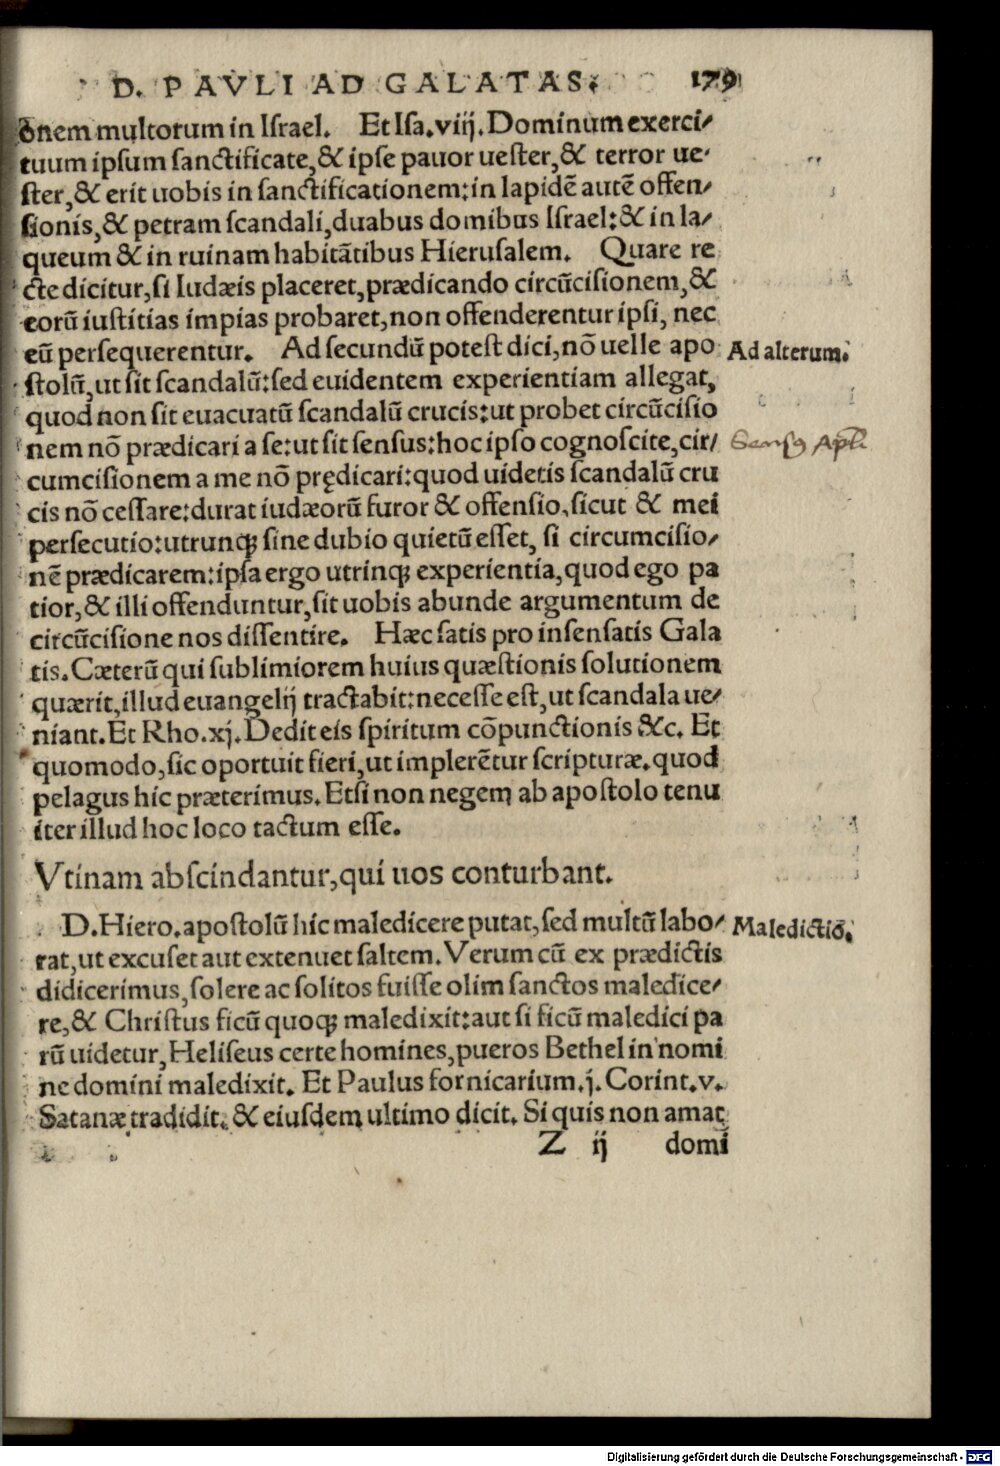 D. PAVLI AD GALATAS. 179
onem multorum in Israel. Et Isa. viij. Dominum exerci/
tuum ipsum sanctificate, & ipse pauor uester, & terror ue/
ster, & erit uobis in sanctificationem: in lapidē autē offen/
sionis, & petram scandali, duabus domibus Israel: & in la/
queum & in ruinam habitātibus Hierusalem. Quare re
cte dicitur, si Iudæis placeret, prædicando circūcisionem, &
eorū iustitias impias probaret, non offenderentur ipsi, nec
eū persequerentur. Ad secundū potest dici, nō uelle apo
Ad alterum.
stolū, ut sit scandalū: sed euidentem experientiam allegat,
quod non sit euacuatū scandalū crucis: ut probet circūcisio
nem nō prædicari a se: ut sit sensus: hoc ipso cognoscite, cir/
Sensus Apli
cumcisionem a me nō prędicari: quod uidetis scandalū cru
cis nō cessare: durat iudæorū furor & offensio, sicut & mei
persecutio: utrunq; sine dubio quietū esset, si circumcisio/
nē prædicarem: ipsa ergo utrinq; experientia, quod ego pa
tior, & illi offenduntur, sit uobis abunde argumentum de
circūcisione nos dissentire. Hæc satis pro insensatis Gala
tis. Cæterū qui sublimiorem huius quæstionis solutionem
quærit, illud euangelij tractabit: necesse est, ut scandala ue/
niant. Et Rho. xj. Dedit eis spiritum cōpunctionis &c. Et
quomodo, sic oportuit fieri, ut implerētur scripturæ. quod
pelagus hic præterimus. Etsi non negem ab apostolo tenu
iter illud hoc loco tactum esse.
Vtinam abscindantur, qui uos conturbant.
D. Hiero. apostolū hic maledicere putat, sed multū labo/
Maledictiō.
rat, ut excuset aut extenuet saltem. Verum cū ex prædictis
didicerimus, solere ac solitos fuisse olim sanctos maledice/
re, & Christus ficū quoq; maledixit: aut si ficū maledici pa
rū uidetur, Heliseus certe homines, pueros Bethel in nomi
ne domini maledixit. Et Paulus fornicarium. j. Corint. v.
Satanæ tradidit. & eiusdem ultimo dicit. Si quis non amat
Z ij domi
Digitalisierung gefördert durch die Deutsche Forschungsgemeinschaft - DFG